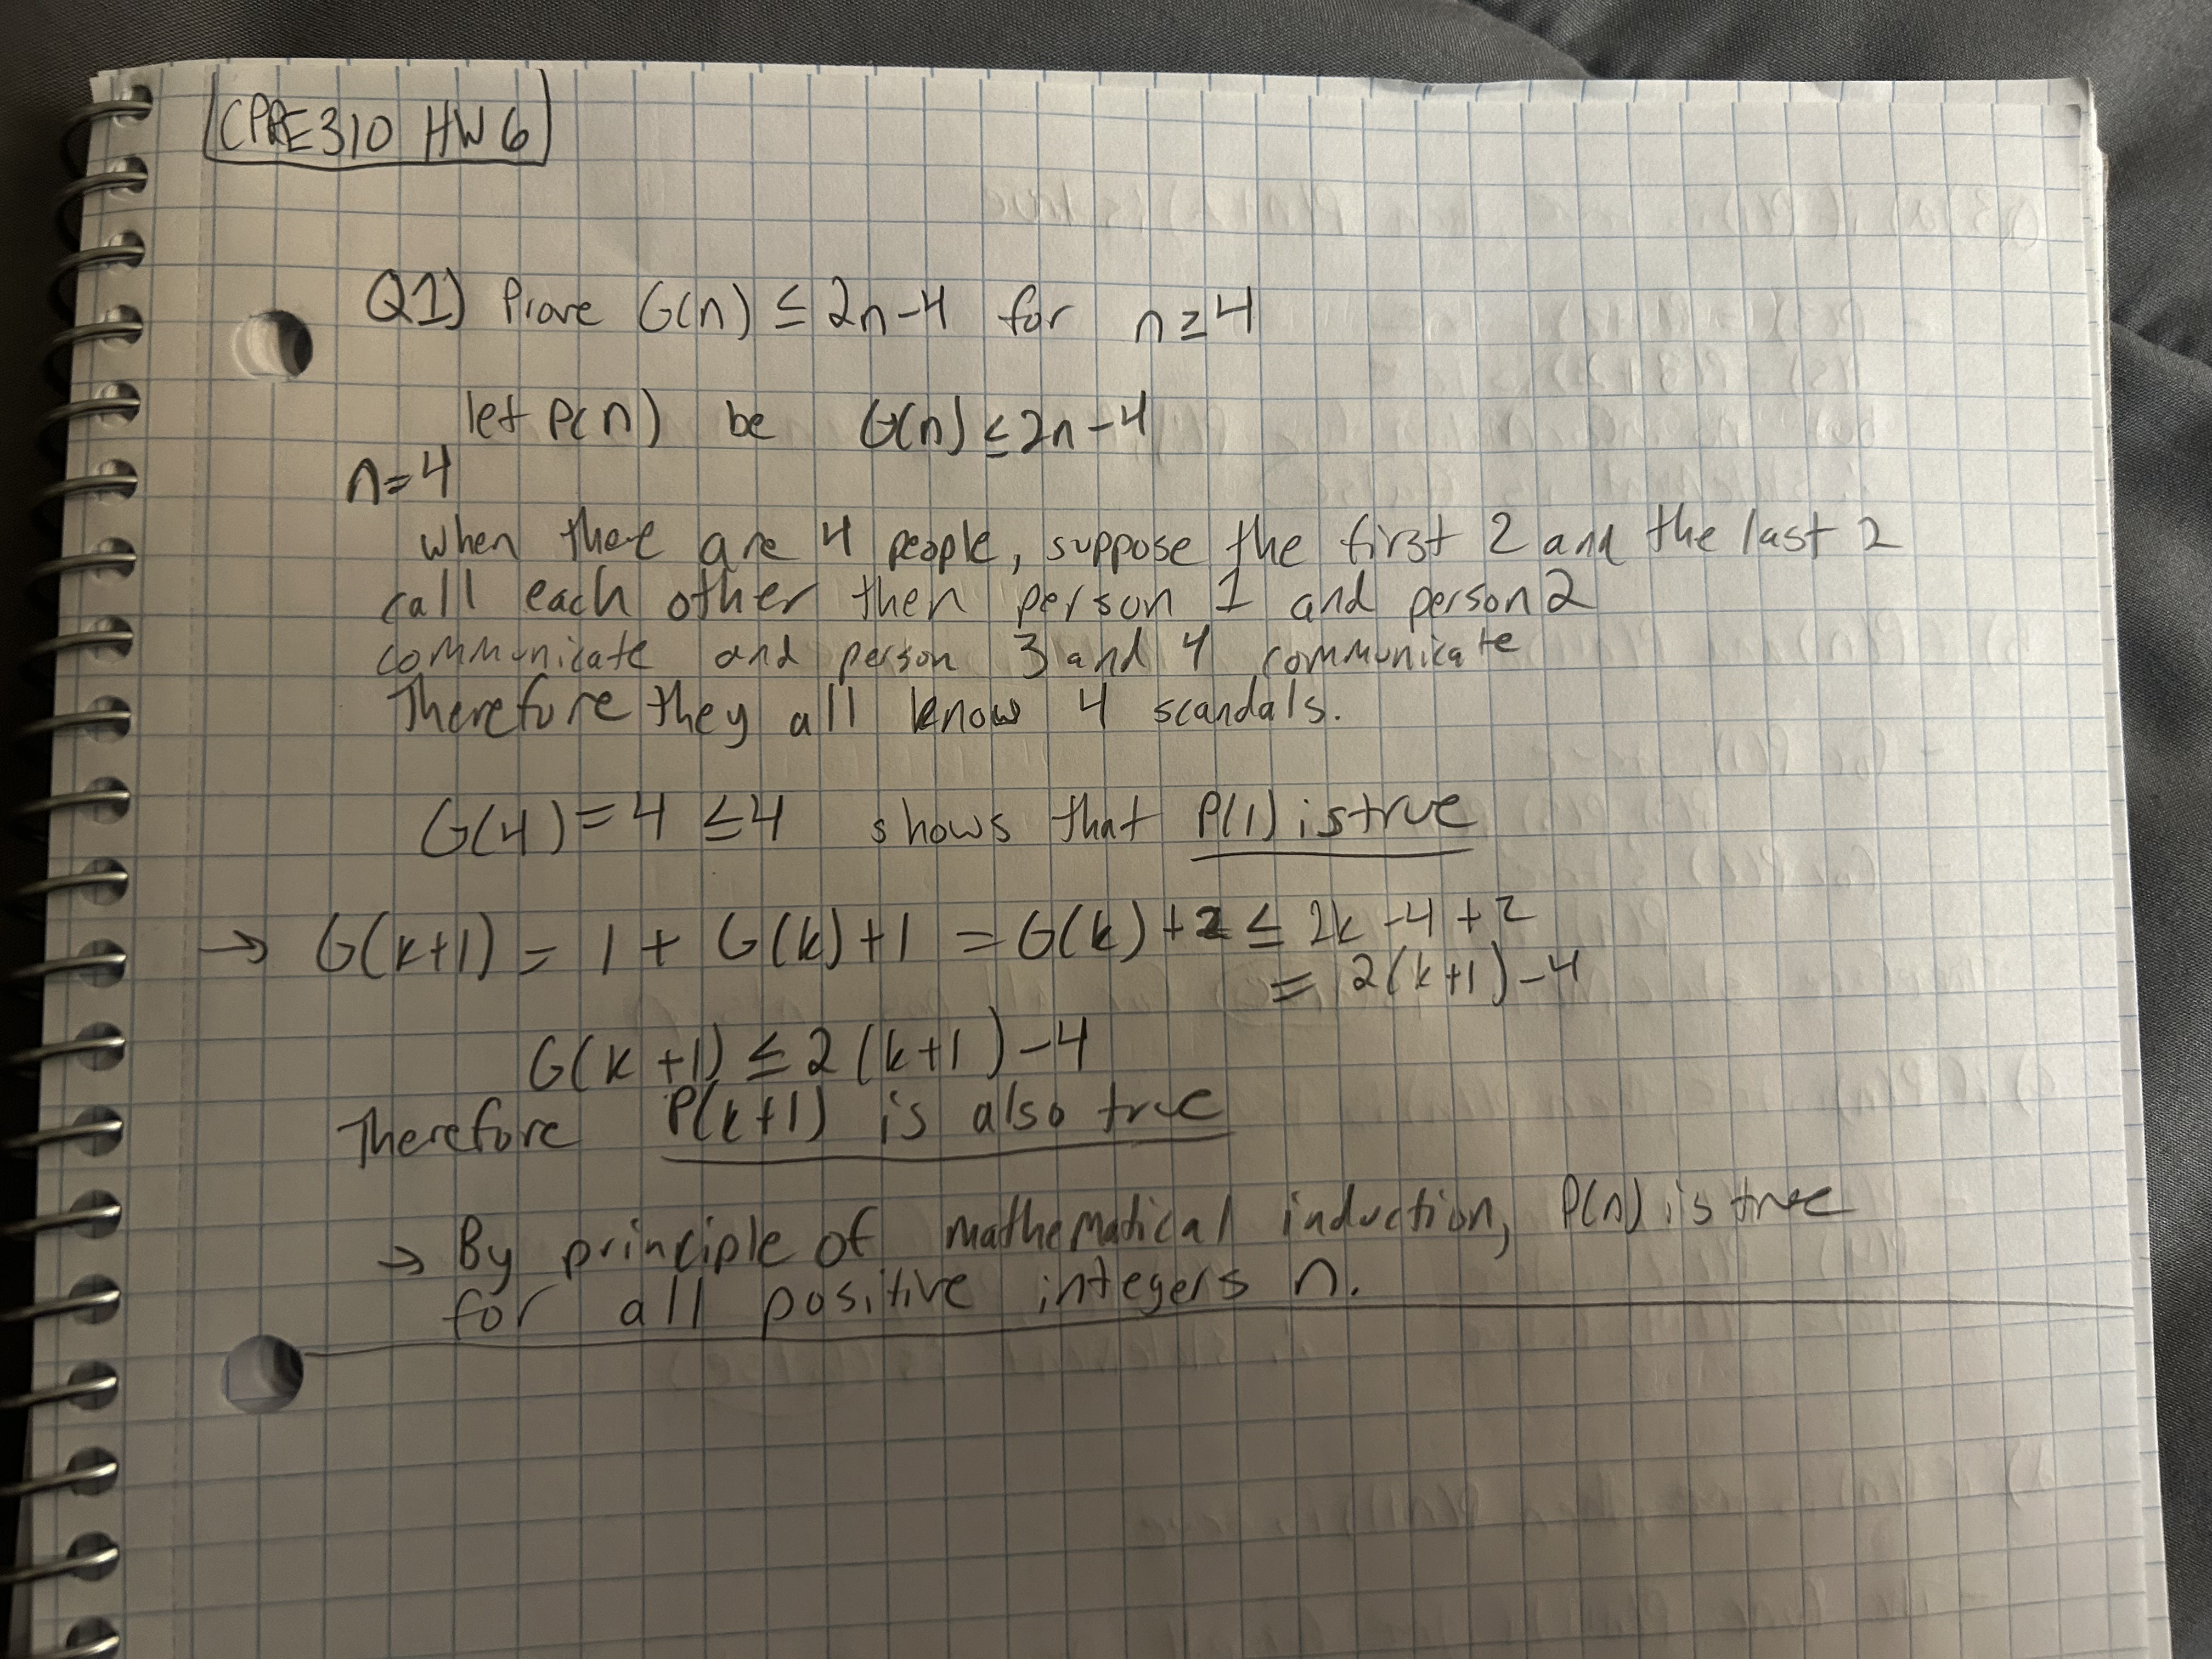 CPRE310 HW6
Q1) Prove G(n) ≤ 2n-4 for n≥4
let P(n) be G(n) ≤ 2n-4
n=4
when there are 4 people, suppose the first 2 and the last 2
call each other then person 1 and person 2
communicate and person 3 and 4 communicate
Therefore they all know 4 scandals.
G(4) = 4 ≤ 4 shows that P(1) is true
→ G(k+1) = 1 + G(k) + 1 = G(k) + 2 ≤ 2k -4 + 2
= 2(k+1) -4
G(k+1) ≤ 2(k+1) -4
Therefore P(k+1) is also true
→ By principle of mathematical induction, P(n) is true
for all positive integers n.